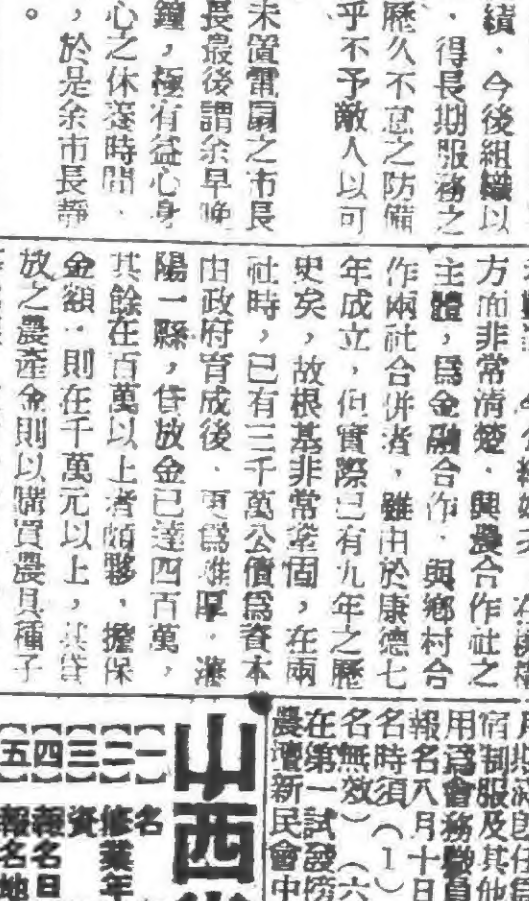 績，今後組織以
，得長期服務之
歷久不怠之防備
乎不予敵人以可
未置電扇之市長
長最後謂余早晚
鐘，極有益心身
心之休養時間，
，於是余市長靜
。
方面非常清楚，興農合作社之
主體，爲金融合作，與鄉村合
作兩社合併者，雖由於康德七
年成立，但實際已有九年之歷
史矣，故根基非常鞏固，在兩
社時，已有三千萬公債爲資本
由政府育成後，更爲雄厚，瀋
陽一縣，貸放金已達四百萬，
其餘在百萬以上者頗夥，擔保
金額，則在千萬元以上，其貸
放之農產金則以購買農具種子
宿制服及其他
用爲會務職員
報名八月十日
名時須（1）
名無效）（六
在第一試發榜
農壇新民會中
山西
（一）名
（二）修業年
（三）資
（四）報名日
（五）報名地